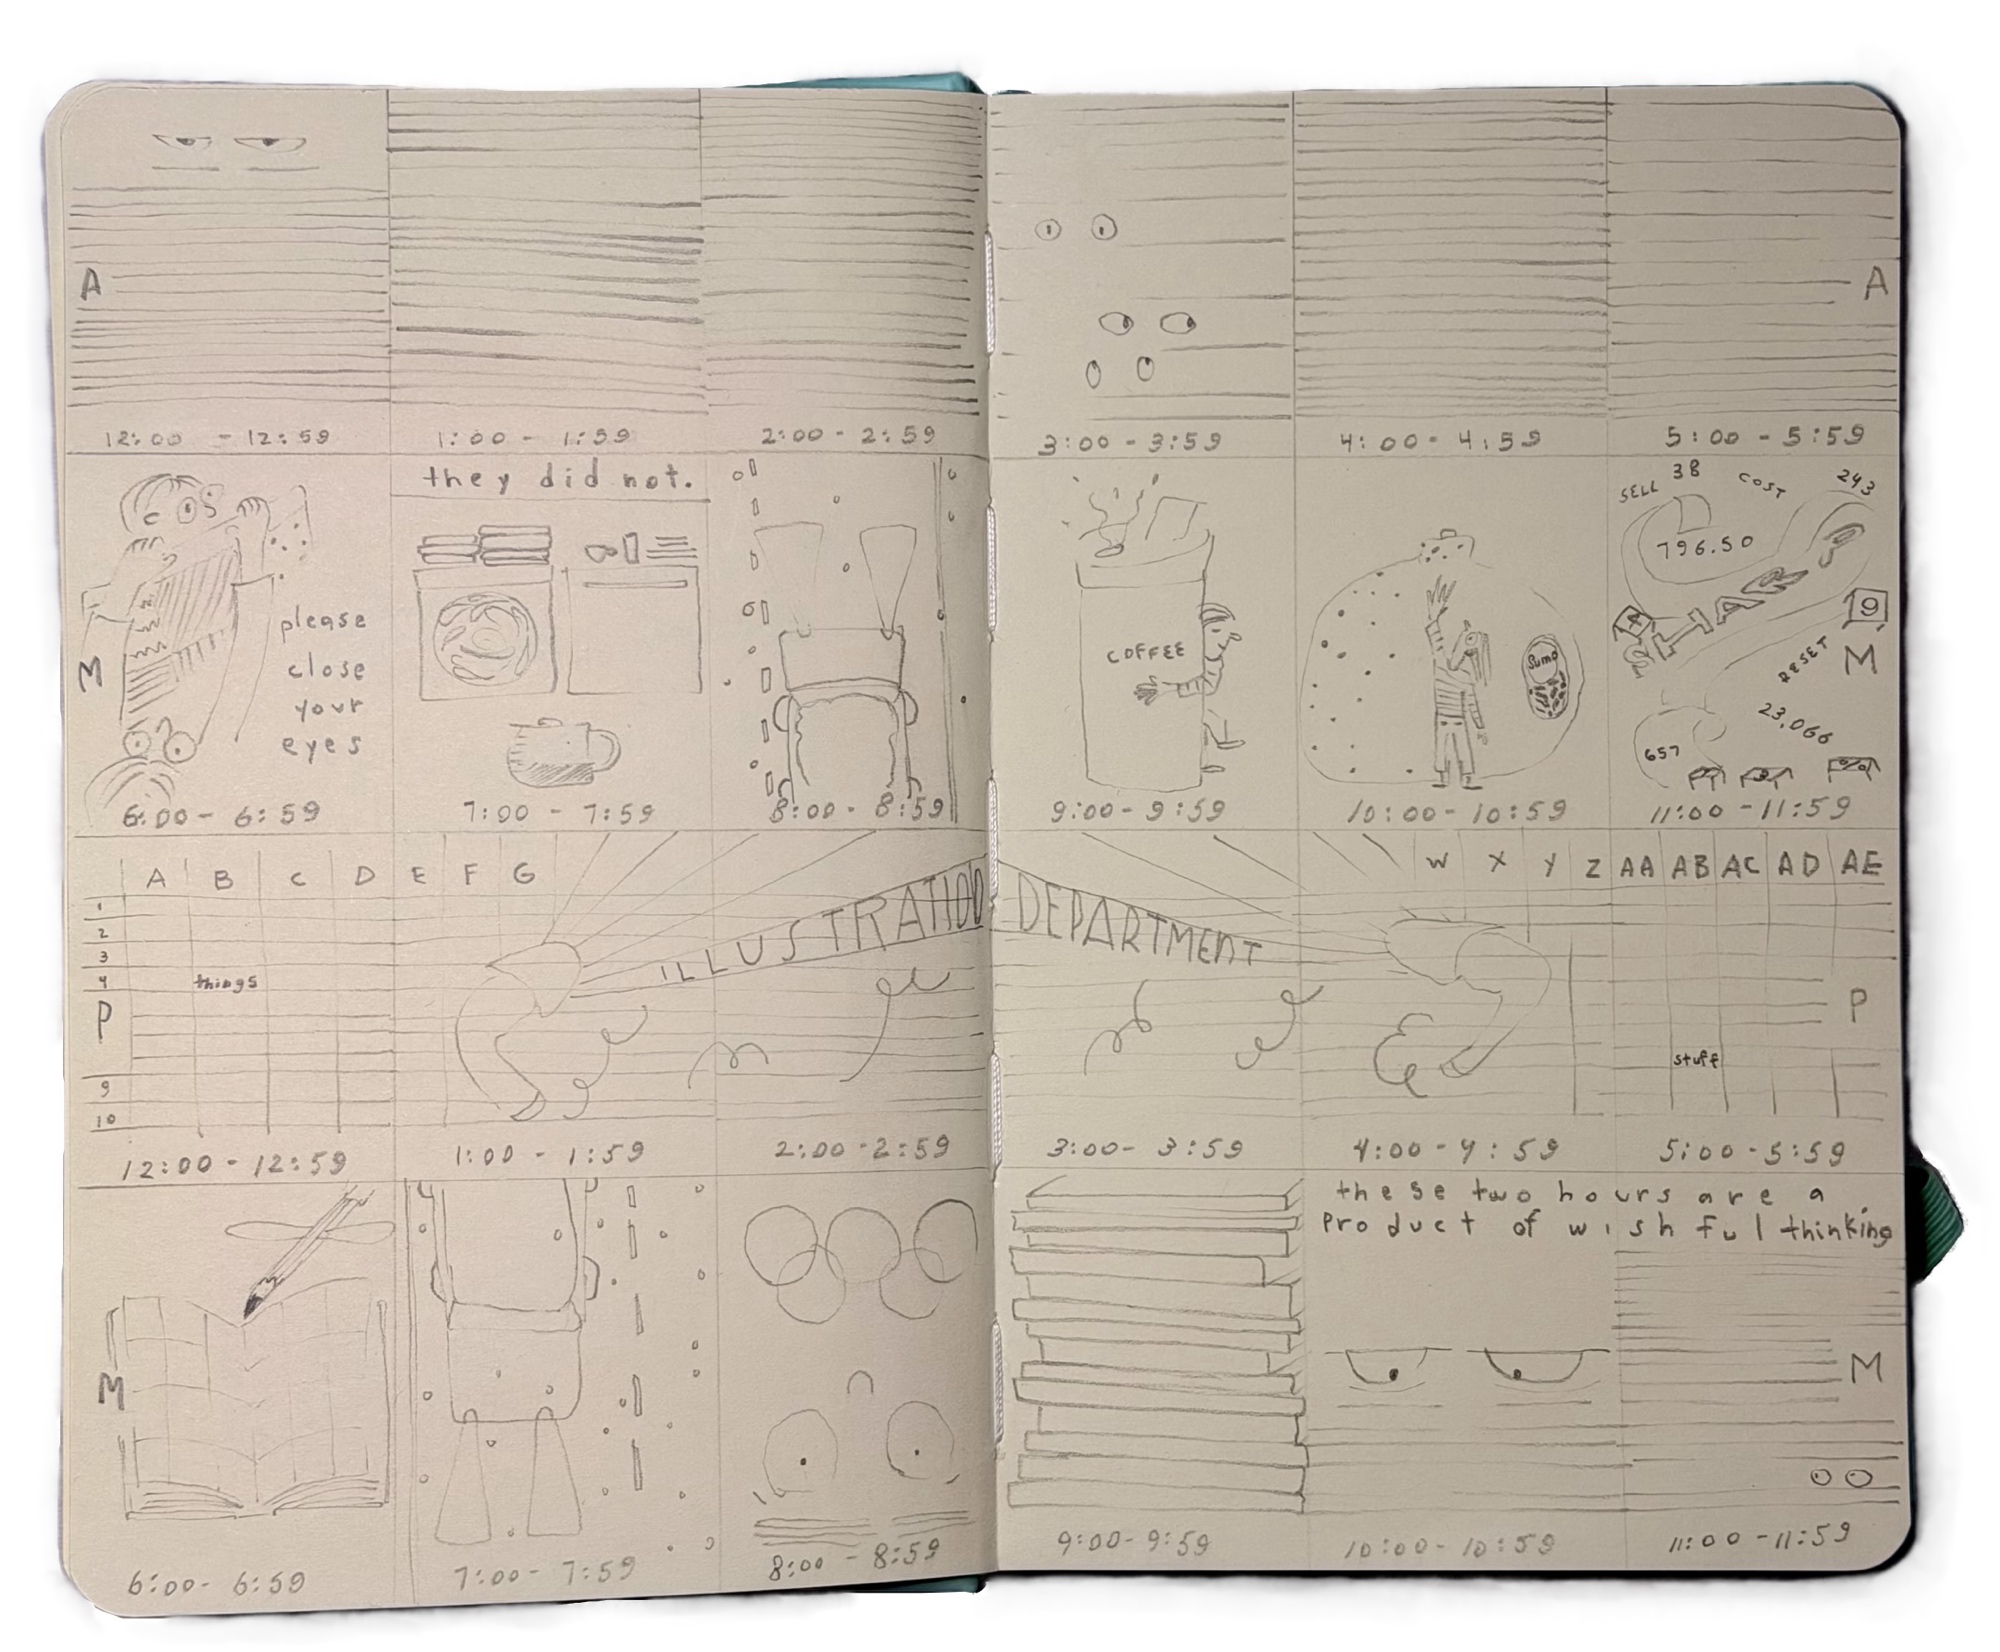 A
A
12:00 - 12:59
1:00 - 1:59
2:00 - 2:59
3:00 - 3:59
4:00 - 4:59
5:00 - 5:59
M
please
close
your
eyes
they did not.
COFFEE
Sumo
SELL 38 COST 243
796.50
START UP
4
9
M
RESET
23,066
657
6:00 - 6:59
7:00 - 7:59
8:00 - 8:59
9:00 - 9:59
10:00 - 10:59
11:00 - 11:59
A B C D E F G
W X Y Z AA AB AC AD AE
1
2
3
4
things
P
9
10
ILLUSTRATION DEPARTMENT
P
stuff
12:00 - 12:59
1:00 - 1:59
2:00 - 2:59
3:00 - 3:59
4:00 - 4:59
5:00 - 5:59
these two hours are a
product of wishful thinking
M
M
6:00 - 6:59
7:00 - 7:59
8:00 - 8:59
9:00 - 9:59
10:00 - 10:59
11:00 - 11:59